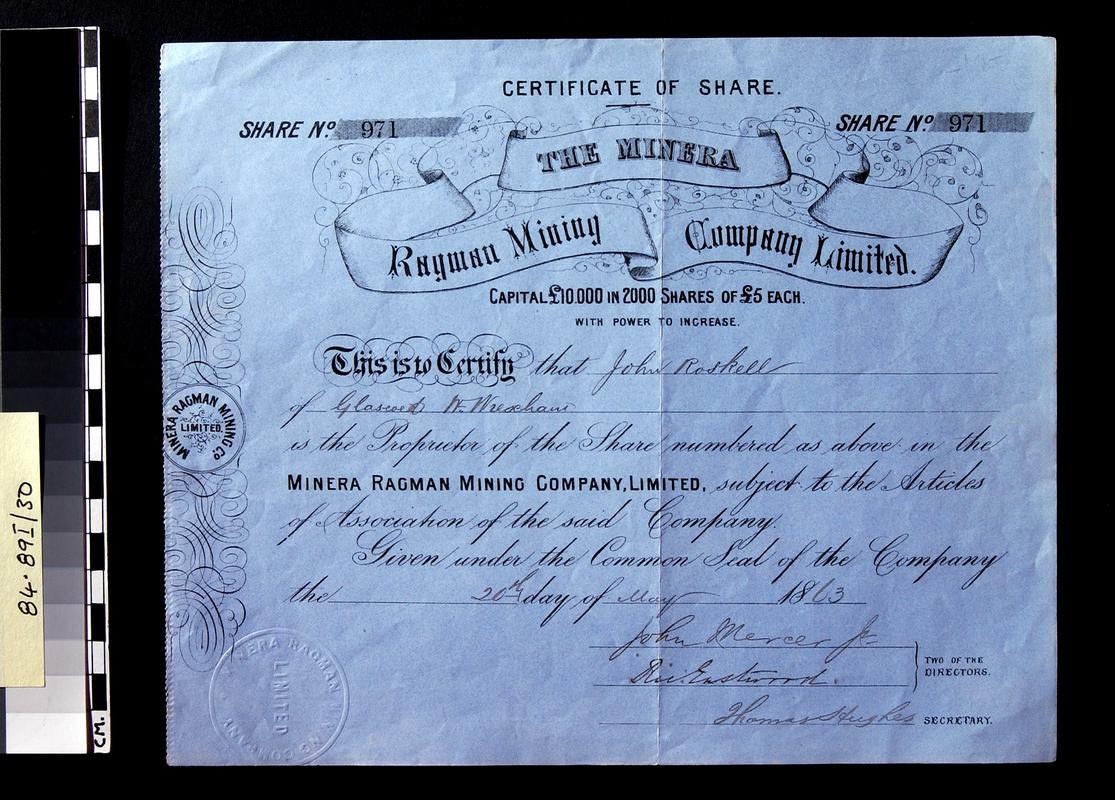 CERTIFICATE OF SHARE.
SHARE Nº 971
SHARE Nº 971
THE MINERA
Ragman Mining Company Limited.
CAPITAL £10.000 IN 2000 SHARES OF £5 EACH.
WITH POWER TO INCREASE.
This is to Certify that John Roskell
of Glascoed Nr. Wrexham
is the Proprietor of the Share numbered as above in the
MINERA RAGMAN MINING COMPANY, LIMITED, subject to the Articles
of Association of the said Company.
Given under the Common Seal of the Company
the 20th day of May 1863
John Mercer Jr
Ric. Eastwood.
TWO OF THE
DIRECTORS.
Thomas Hughes SECRETARY.
MINERA RAGMAN MINING Co
LIMITED.
MINERA RAGMAN MINING COMPANY
LIMITED
84.89I/30
CM.